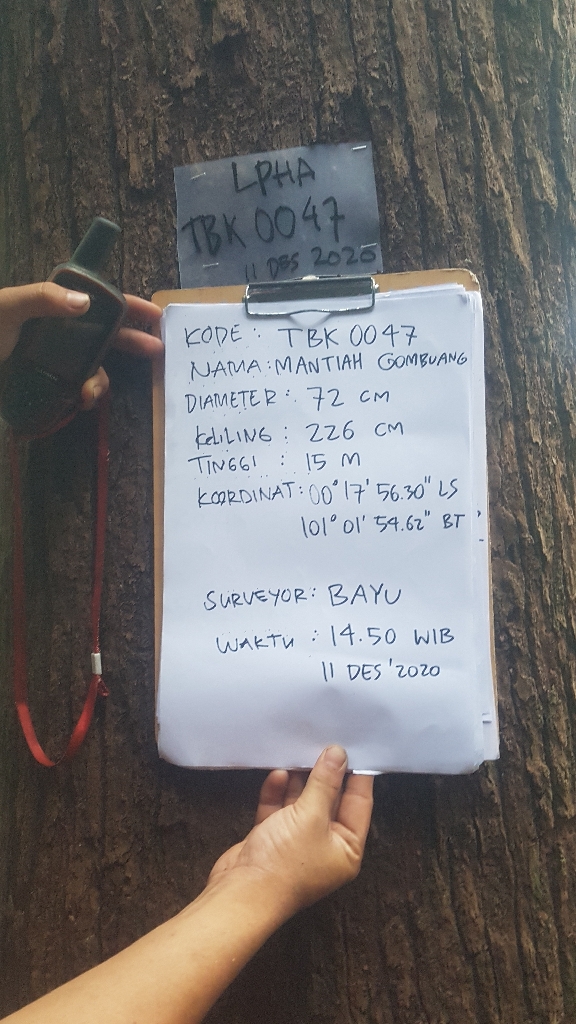 LPHA
TBK 0047
11 DES 2020
KODE : TBK 0047
NAMA : MANTIAH GOMBUANG
DIAMETER : 72 CM
KELILING : 226 CM
TINGGI : 15 M
KOORDINAT : 00° 17' 56.30" LS
101° 01' 54.62" BT
SURVEYOR : BAYU
WAKTU : 14.50 WIB
11 DES '2020